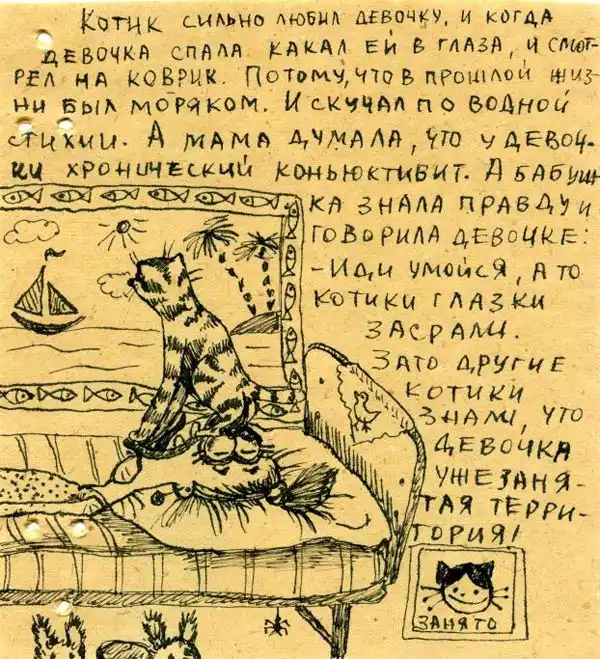 Котик сильно любил девочку, и когда
девочка спала какал ей в глаза, и смот-
рел на коврик. Потому, что в прошлой жиз-
ни был моряком. И скучал по водной
стихии. А мама думала, что у девоч-
ки хронический коньюктивит. А бабуш-
ка знала правду и
говорила девочке:
- Иди умойся, а то
котики глазки
засрали.
Зато другие
котики
знали, что
девочка
уже заня-
тая терри-
тория!
занято